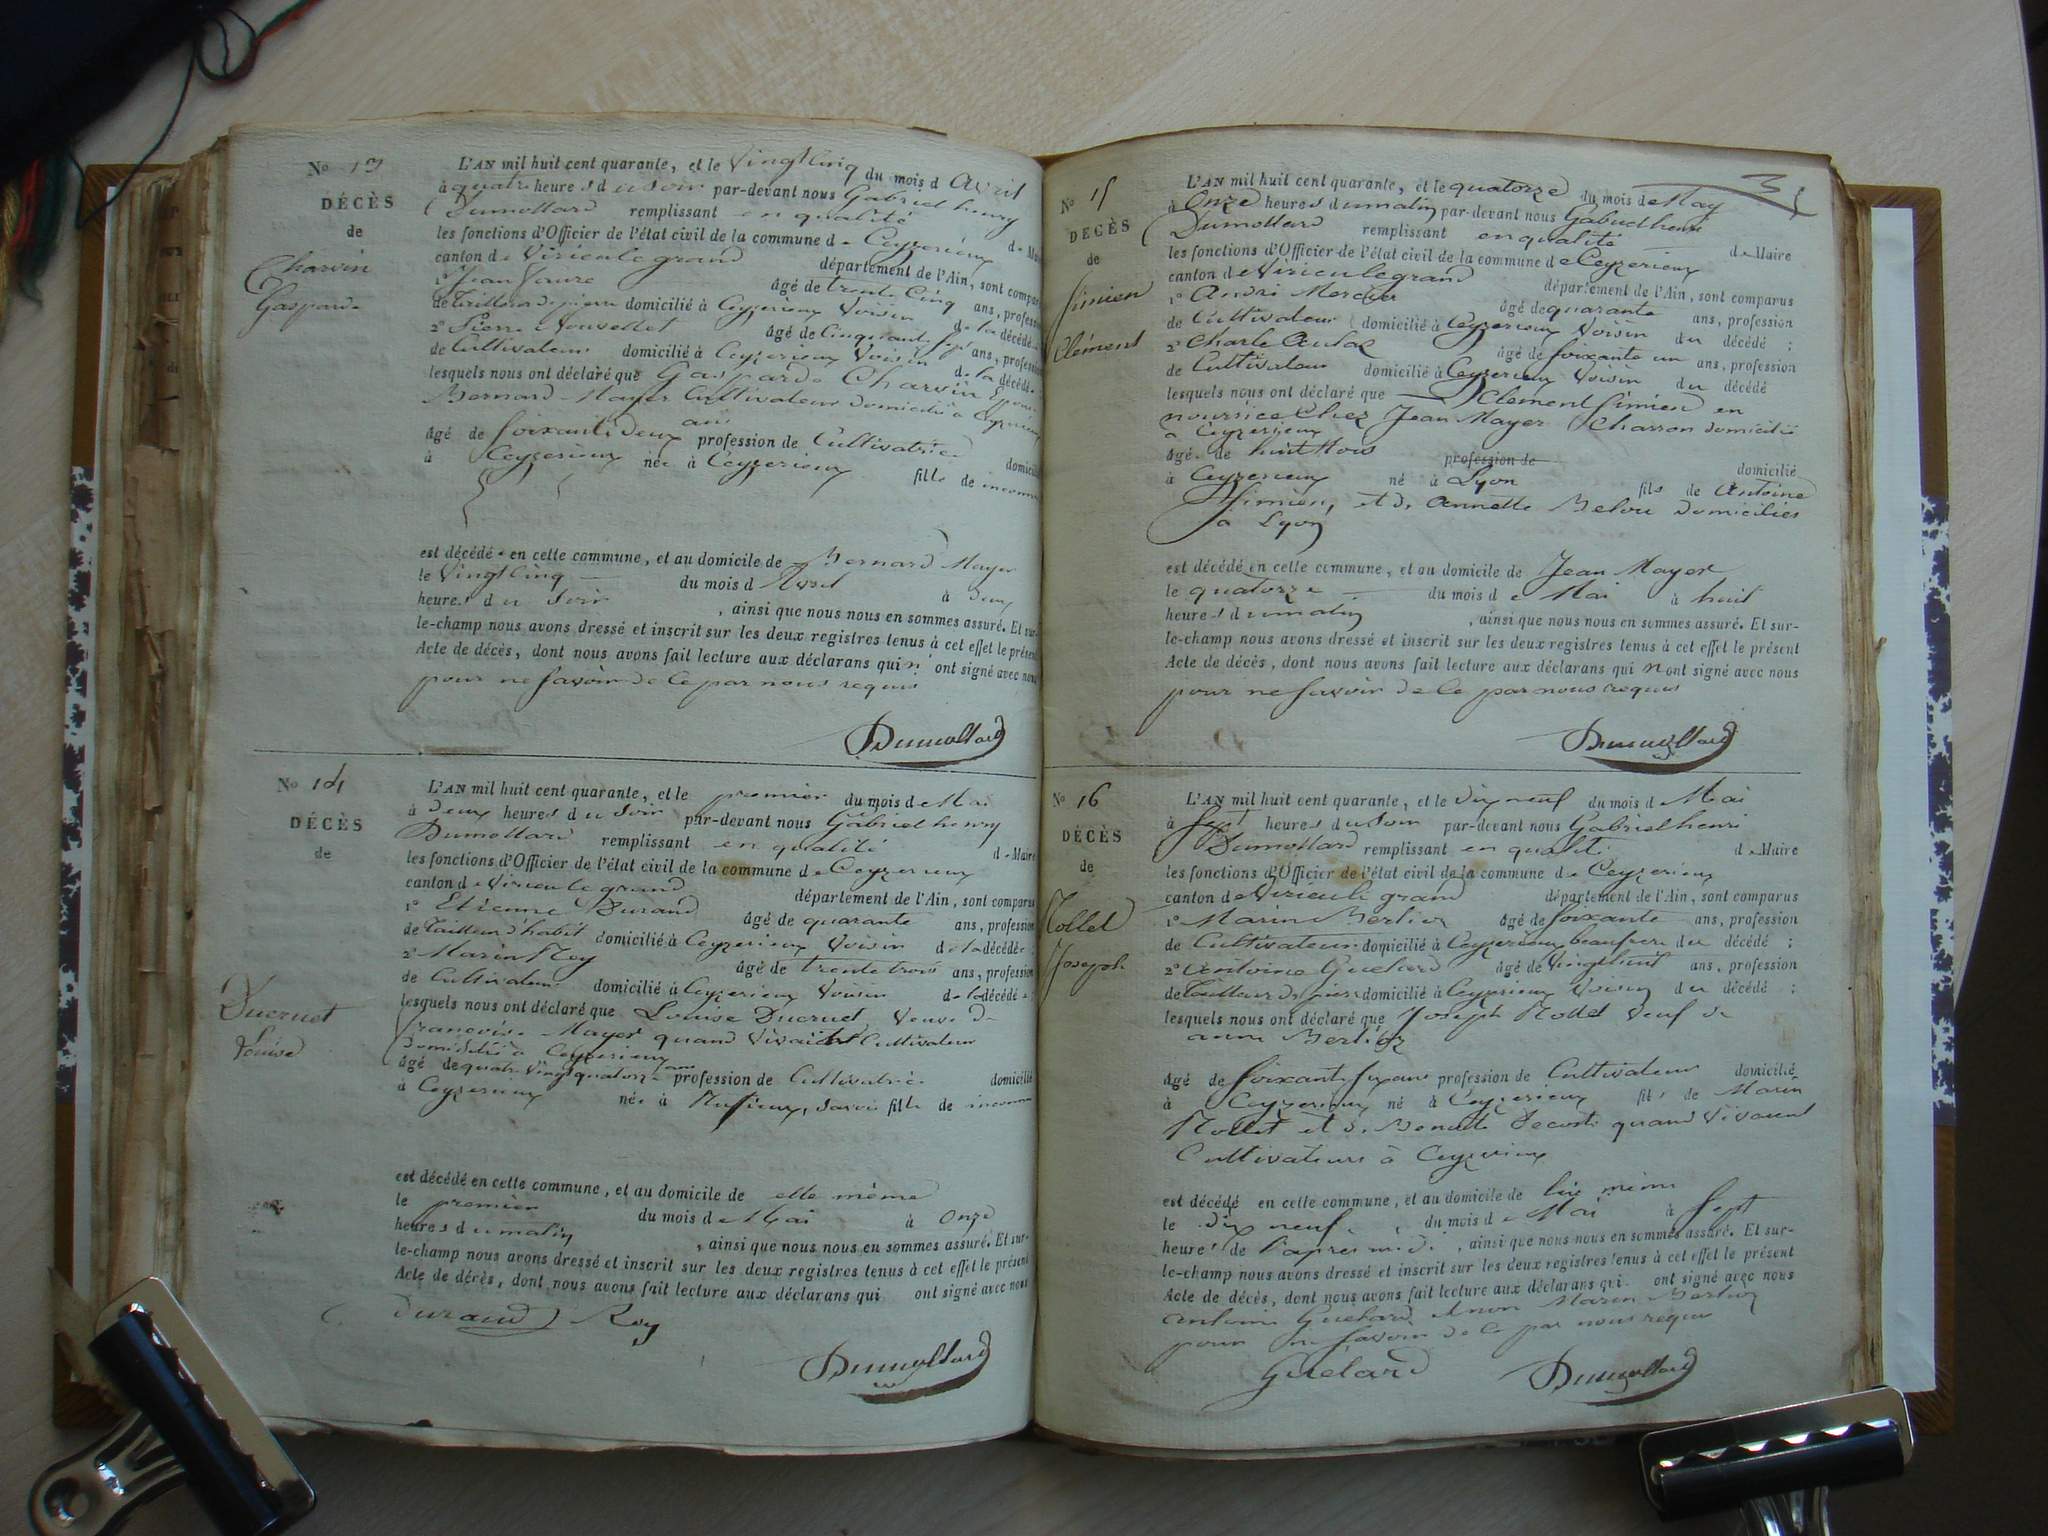 No 13
DÉCÈS
de
Charvin
Gasparde
L'AN mil huit cent quarante, et le Vingt Cinq du mois d Avril
à quatre heures du soir par-devant nous Gabriel henry
Dumollard remplissant en qualité de Maire
les fonctions d'Officier de l'état civil de la commune de Ceyzerieux
canton de Virieu le grand département de l'Ain, sont comparus
1° Jean âgé de trente Cinq ans, profession
de tailleur de pierre domicilié à Ceyzerieux Voisin de la décédée
2° Pierre âgé de Cinquante sept ans, profession
de Cultivateur domicilié à Ceyzerieux Voisin de la décédée
lesquels nous ont déclaré que Gasparde Charvin Epouse
Bernard Mayer Cultivateur domicilié à Ceyzerieux
âgé de soixante deux ans profession de Cultivatrice domicilié
à Ceyzerieux née à Ceyzerieux fille de inconnu
est décédée en cette commune, et au domicile de Bernard Mayer
le Vingt Cinq du mois d Avril à deux
heures du soir, ainsi que nous nous en sommes assuré. Et sur-
le-champ nous avons dressé et inscrit sur les deux registres tenus à cet effet le présent
Acte de décès, dont nous avons fait lecture aux déclarans qui n'ont signé avec nous
pour ne savoir de ce par nous requis
Dumollard
No 14
DÉCÈS
de
Ducruet
Louise
L'AN mil huit cent quarante, et le premier du mois de Mai
à deux heures du soir par-devant nous Gabriel henry
Dumollard remplissant en qualité de Maire
les fonctions d'Officier de l'état civil de la commune de Ceyzerieux
canton de Virieu le grand département de l'Ain, sont comparus
1° Etienne Durand âgé de quarante ans, profession
de tailleur d'habit domicilié à Ceyzerieux Voisin de la décédée
2° Marin Rey âgé de trente trois ans, profession
de Cultivateur domicilié à Ceyzerieux Voisin de la décédée
lesquels nous ont déclaré que Louise Ducruet Veuve de
françoise Mayer quand Vivait Cultivateur
domicilié à Ceyzerieux
âgé de quatre Vingt quatorze ans profession de Cultivatrice domicilié
à Ceyzerieux née à fille de inconnu
est décédé en cette commune, et au domicile de elle même
le premier du mois de Mai à Onze
heures du matin, ainsi que nous nous en sommes assuré. Et sur-
le-champ nous avons dressé et inscrit sur les deux registres tenus à cet effet le présent
Acte de décès, dont nous avons fait lecture aux déclarans qui ont signé avec nous
Durand Rey
Dumollard
3
No 15
DÉCÈS
de
Simien
Clément
L'AN mil huit cent quarante, et le quatorze du mois de May
à Onze heures du matin par-devant nous Gabriel henri
Dumollard remplissant en qualité de Maire
les fonctions d'Officier de l'état civil de la commune de Ceyzerieux
canton de Virieu le grand département de l'Ain, sont comparus
1° André Mercier âgé de quarante ans, profession
de Cultivateur domicilié à Ceyzerieux Voisin du décédé ;
2° Charle âgé de soixante un ans, profession
de Cultivateur domicilié à Ceyzerieux Voisin du décédé
lesquels nous ont déclaré que Clément Simien en
nourrice Chez Jean Mayer Charron domicilié
a Ceyzerieux
âgé de huit Mois profession de domicilié
à Ceyzerieux né à Lyon fils de Antoine
Simien, et de Annette Belou domiciliés
a Lyon
est décédé en cette commune, et au domicile de Jean Mayer
le quatorze du mois de Mai à huit
heures du matin, ainsi que nous nous en sommes assuré. Et sur-
le-champ nous avons dressé et inscrit sur les deux registres tenus à cet effet le présent
Acte de décès, dont nous avons fait lecture aux déclarans qui n'ont signé avec nous
pour ne savoir de ce par nous requis
Dumollard
No 16
DÉCÈS
de
Mollet
Joseph
L'AN mil huit cent quarante, et le dix neuf du mois d Mai
à sept heures du soir par-devant nous Gabriel henri
Dumollard remplissant en qualité de Maire
les fonctions d'Officier de l'état civil de la commune de Ceyzerieux
canton de Virieu le grand département de l'Ain, sont comparus
1° Marin Berlioz âgé de soixante ans, profession
de Cultivateur domicilié à Ceyzerieux beaufrere du décédé ;
2° Antoine Guelard âgé de Vingt huit ans, profession
de tailleur de pierre domicilié à Ceyzerieux Voisin du décédé ;
lesquels nous ont déclaré que Joseph Mollet Veuf de
anne Berlioz
âgé de soixante six ans profession de Cultivateur domicilié
à Ceyzerieux né à Ceyzerieux fils de Marin
Mollet et de Benoite Decosti quand Vivaient
Cultivateurs à Ceyzerieux
est décédé en cette commune, et au domicile de lui même
le dix neuf du mois de Mai à Sept
heures de l'après midi, ainsi que nous nous en sommes assuré. Et sur-
le-champ nous avons dressé et inscrit sur les deux registres tenus à cet effet le présent
Acte de décès, dont nous avons fait lecture aux déclarans qui ont signé avec nous
antoine Guelard et non Marin Berlioz
pour ne savoir de ce par nous requis
Guelard Dumollard